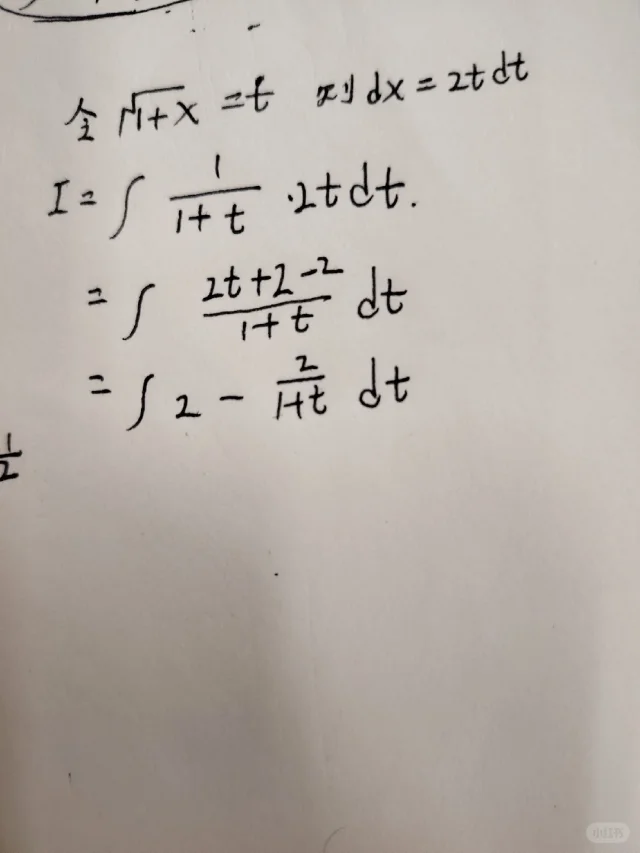 令 √1+x = t 则 dx = 2t dt
I = ∫ 1/(1+t) · 2t dt.
= ∫ (2t+2-2)/(1+t) dt
= ∫ 2 - 2/(1+t) dt
1/2
小红书